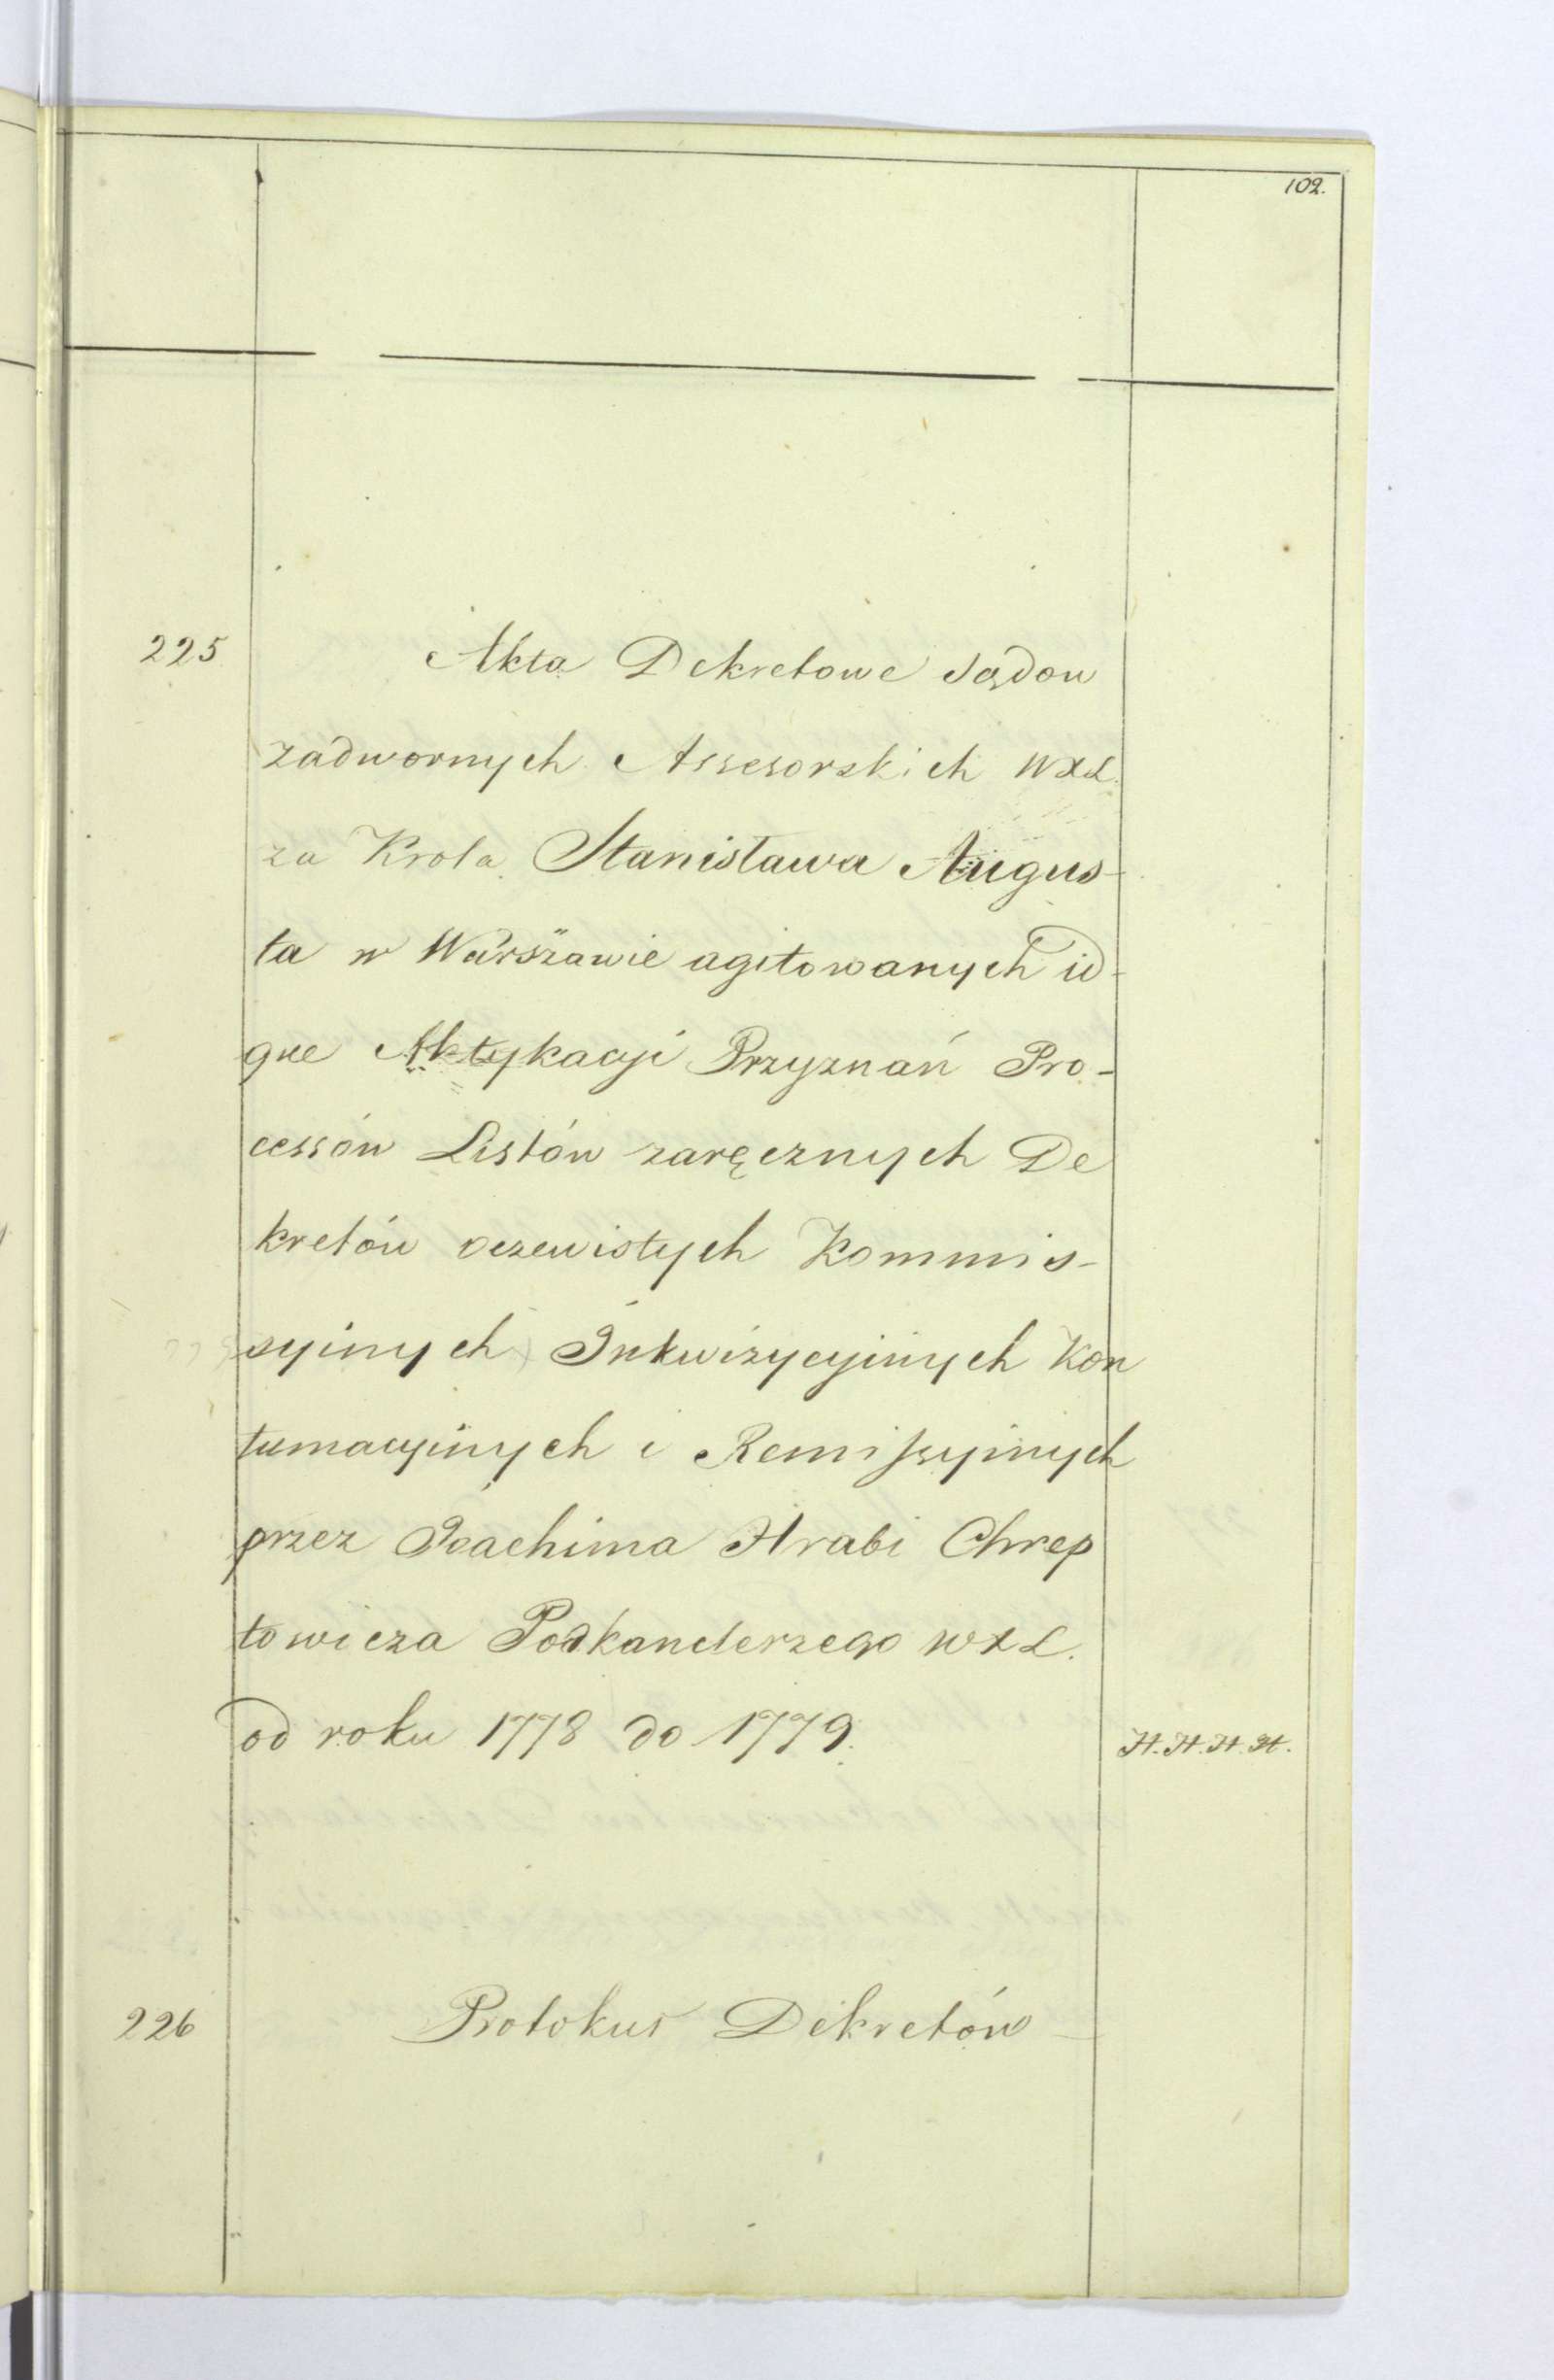 102.
225 Akta Dekretowe Sądow
zadwornych Assesorskich WXL.
za Krola Stanisława Augus-
ta w Warszawie agitowanych id-
que Aktykacyi Przyznań Pro-
cessów Listów zaręcznych De
kretów oczewistych Kommis-
syinych Inkwizycyinych Kon
tumacyinych i Remissyinych
przez Joachima Hrabi Chrep
towicza Podkanclerzego WXL.
od roku 1778 do 1779. H. H. H. H.
226 Protokuł Dekretów